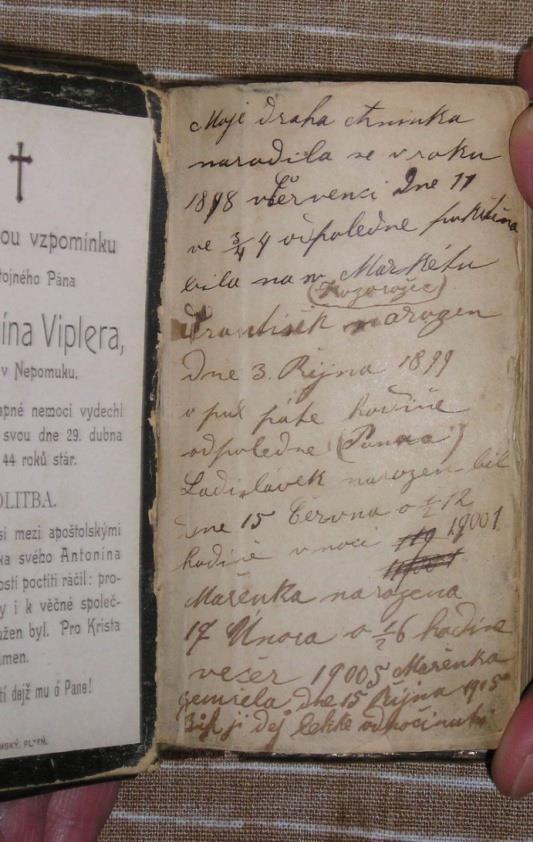 ou vzpomínku
tojného Pána
ína Viplera,
v Nepomuku,
apné nemoci vydechl
svou dne 29. dubna
44 roků stár.
OLITBA.
si mezi apoštolskými
ka svého Antonína
osti poctíti ráčil: pro-
y i k věčné společ-
užen byl. Pro Krista
men.
tí dejž mu ó Pane!
NSKÝ, PLZEŇ.
Moje draha
narodila se v roku
1898 v Červenci Dne 11
ve 3/4 4 odpoledne
bila na Markétu
(Kozorožec)
František narozen
dne 3. Října 1899
o pul páte hodině
odpoledne (Panna)
Ladislávek narozen bil
dne 15 Června o 1/2 12
hodině v noci 19001
Mařenka narozena
17 Února o 1/2 6 hodině
večer 19005 Mařenka
zemřela dne 15 Října 1915
Bůh ji dej lekke odpočinuti